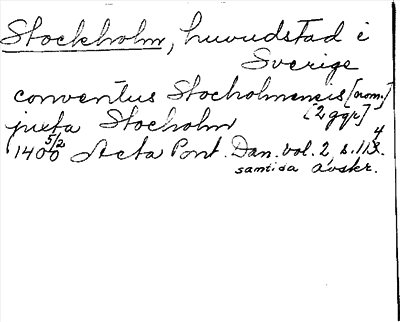 Stockholm, huvudstad i
Sverige
conventus Stocholmensis [nom.]
juxta Stocholm [2 ggr]
1400 5/2 Acta Pont. Dan. vol. 2, s. 114.
samtida avskr.